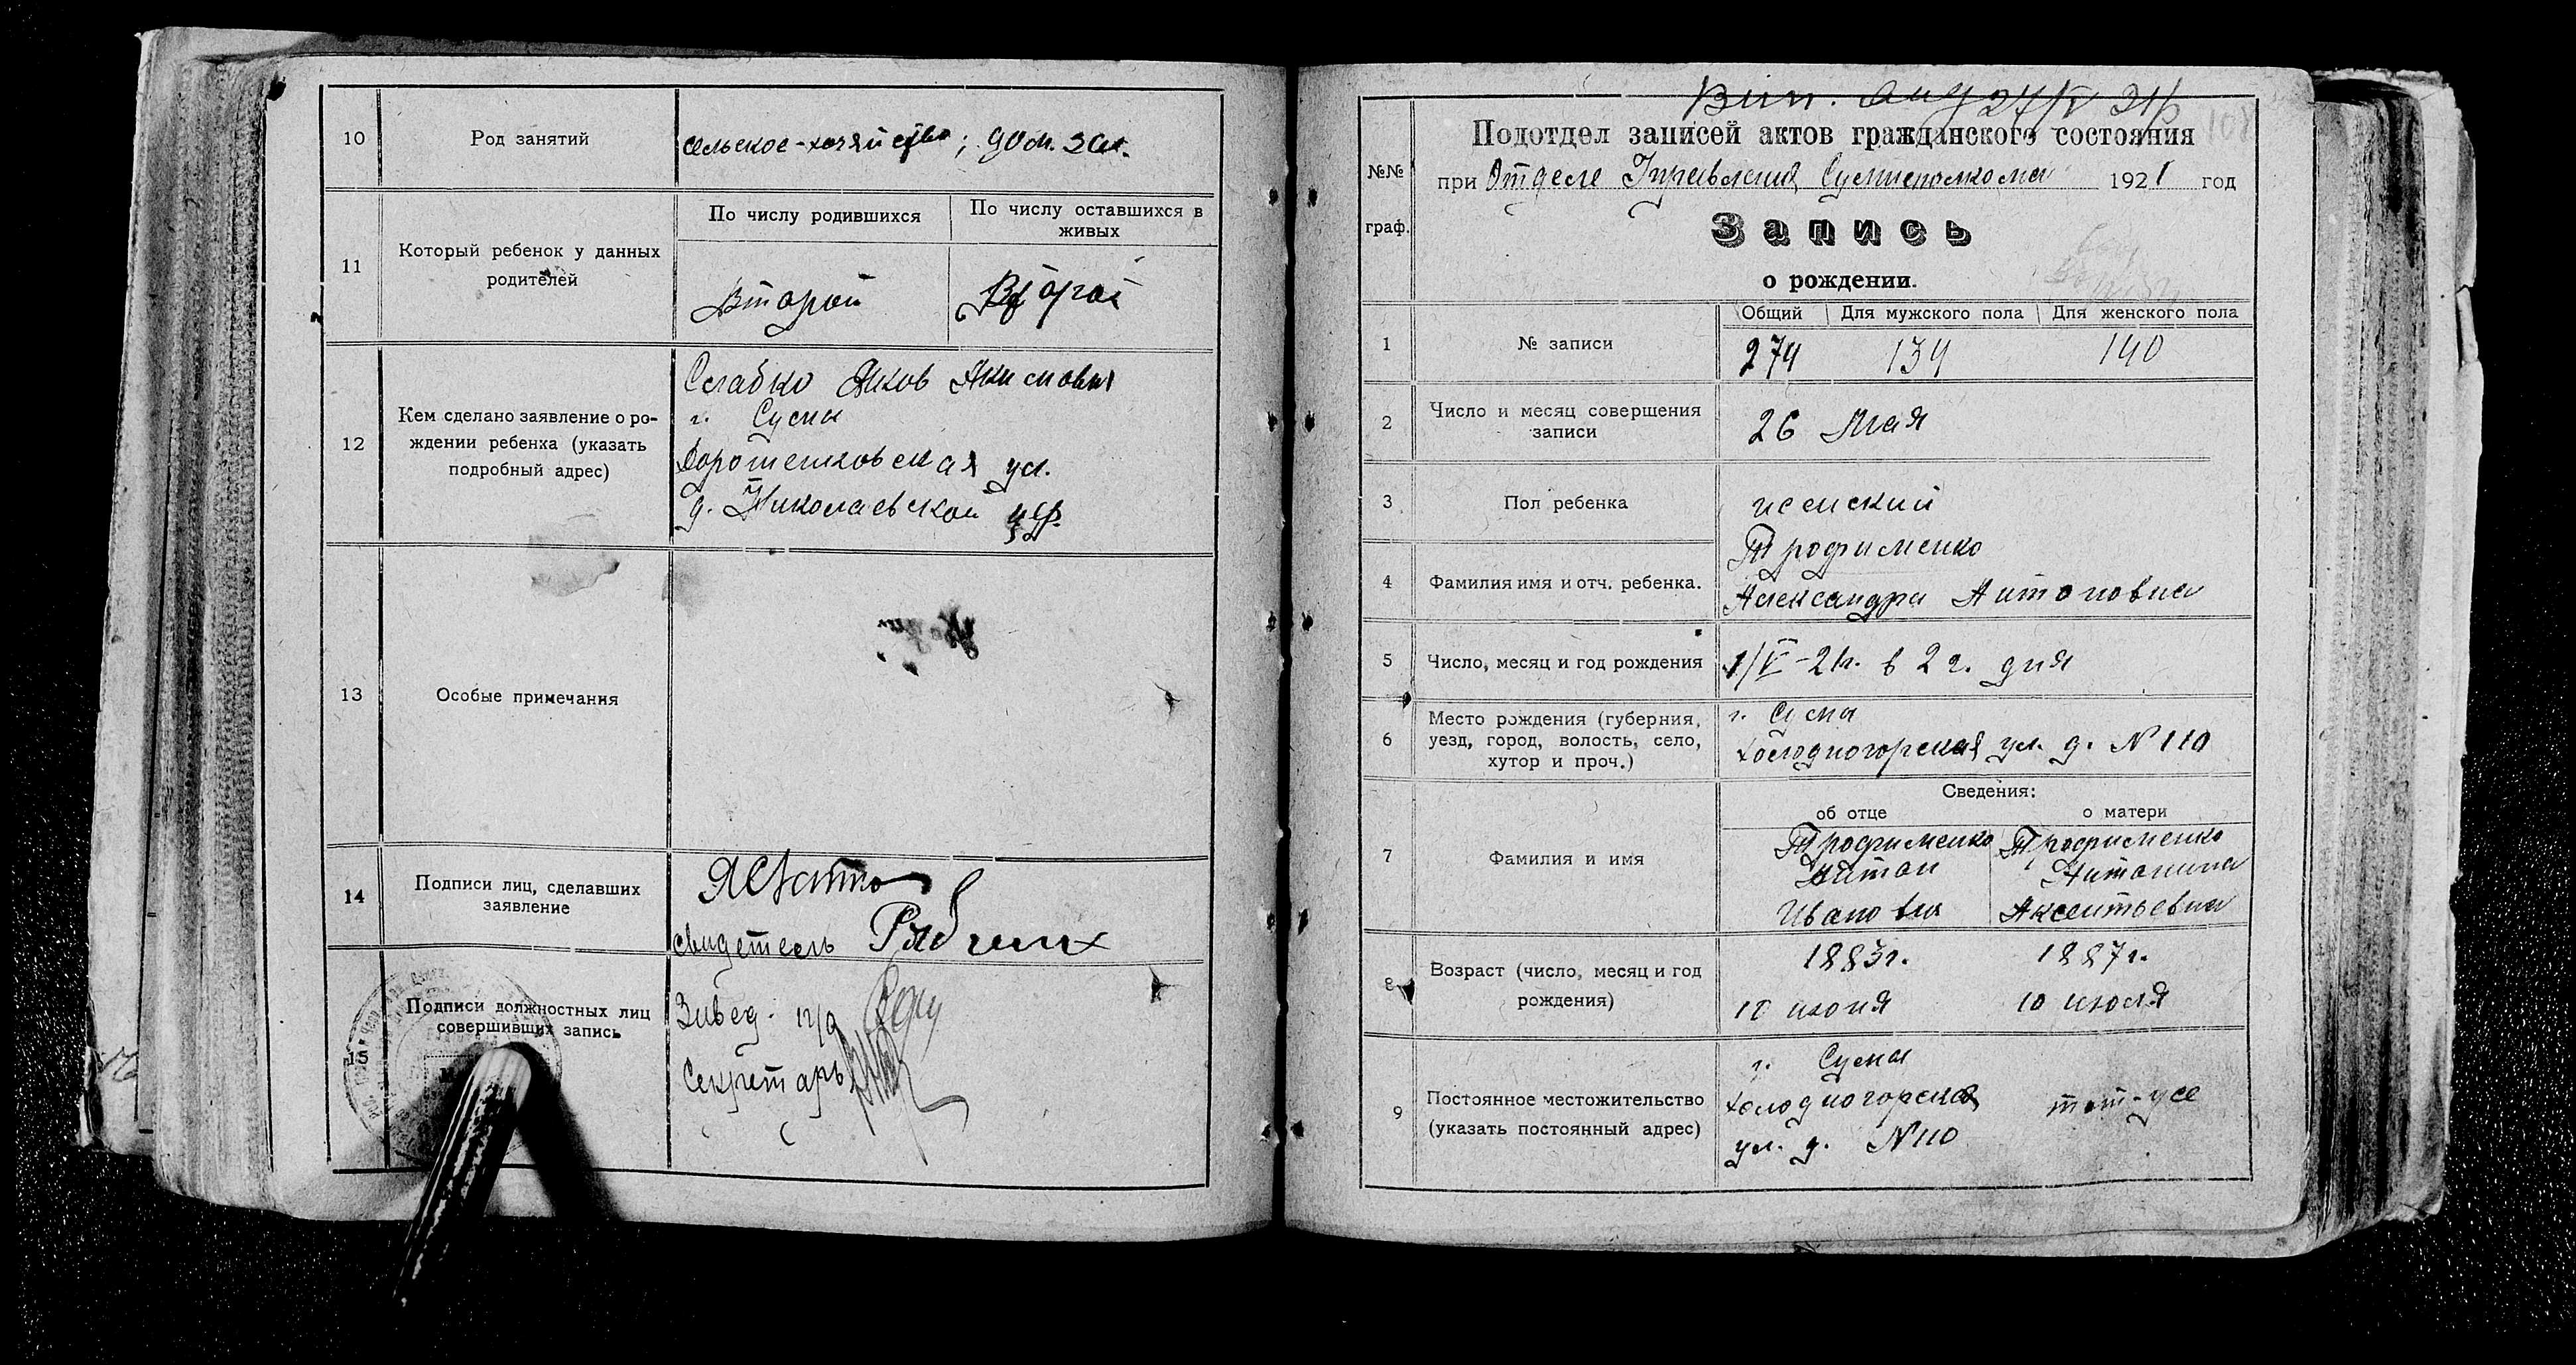 10
Род занятий
сельское-хозяйство; дом. зан.
11
Который ребенок у данных
родителей
По числу родившихся
По числу оставшихся в
живых
Второй
Второй
12
Кем сделано заявление о ро-
ждении ребенка (указать
подробный адрес)
Слабко Яков Акимович
г. Сумы
Дорошенковская ул.
д. Николаевской цер.
13
Особые примечания
14
Подписи лиц, сделавших
заявление
свидетель
15
Подписи должностных лиц
совершивших запись
Завед. п/о
Секретарь
Вип. 27/V 21р
108
Подотдел записей актов гражданского состояния
№№
граф.
при Отделе Управления Сумисполкома 1921 год
Запись
о рождении.
1
№ записи
Общий
Для мужского пола
Для женского пола
274
134
140
2
Число и месяц совершения
записи
26 Мая
3
Пол ребенка
женский
4
Фамилия имя и отч. ребенка.
Трофименко
Александра Антоновна
5
Число, месяц и год рождения
1/V-21г. в 2 ч. дня
6
Место рождения (губерния,
уезд, город, волость, село,
хутор и проч.)
г. Сумы
Холодногорская ул. д. N 110
Сведения:
об отце
о матери
7
Фамилия и имя
Трофименко
Антон
Иванович
Трофименко
Антонина
Аксентьевна
8
Возраст (число, месяц и год
рождения)
1883г.
10 июня
1887г.
10 июля
9
Постоянное местожительство
(указать постоянный адрес)
г. Сумы
Холодногорская
ул. д. N110
том-же